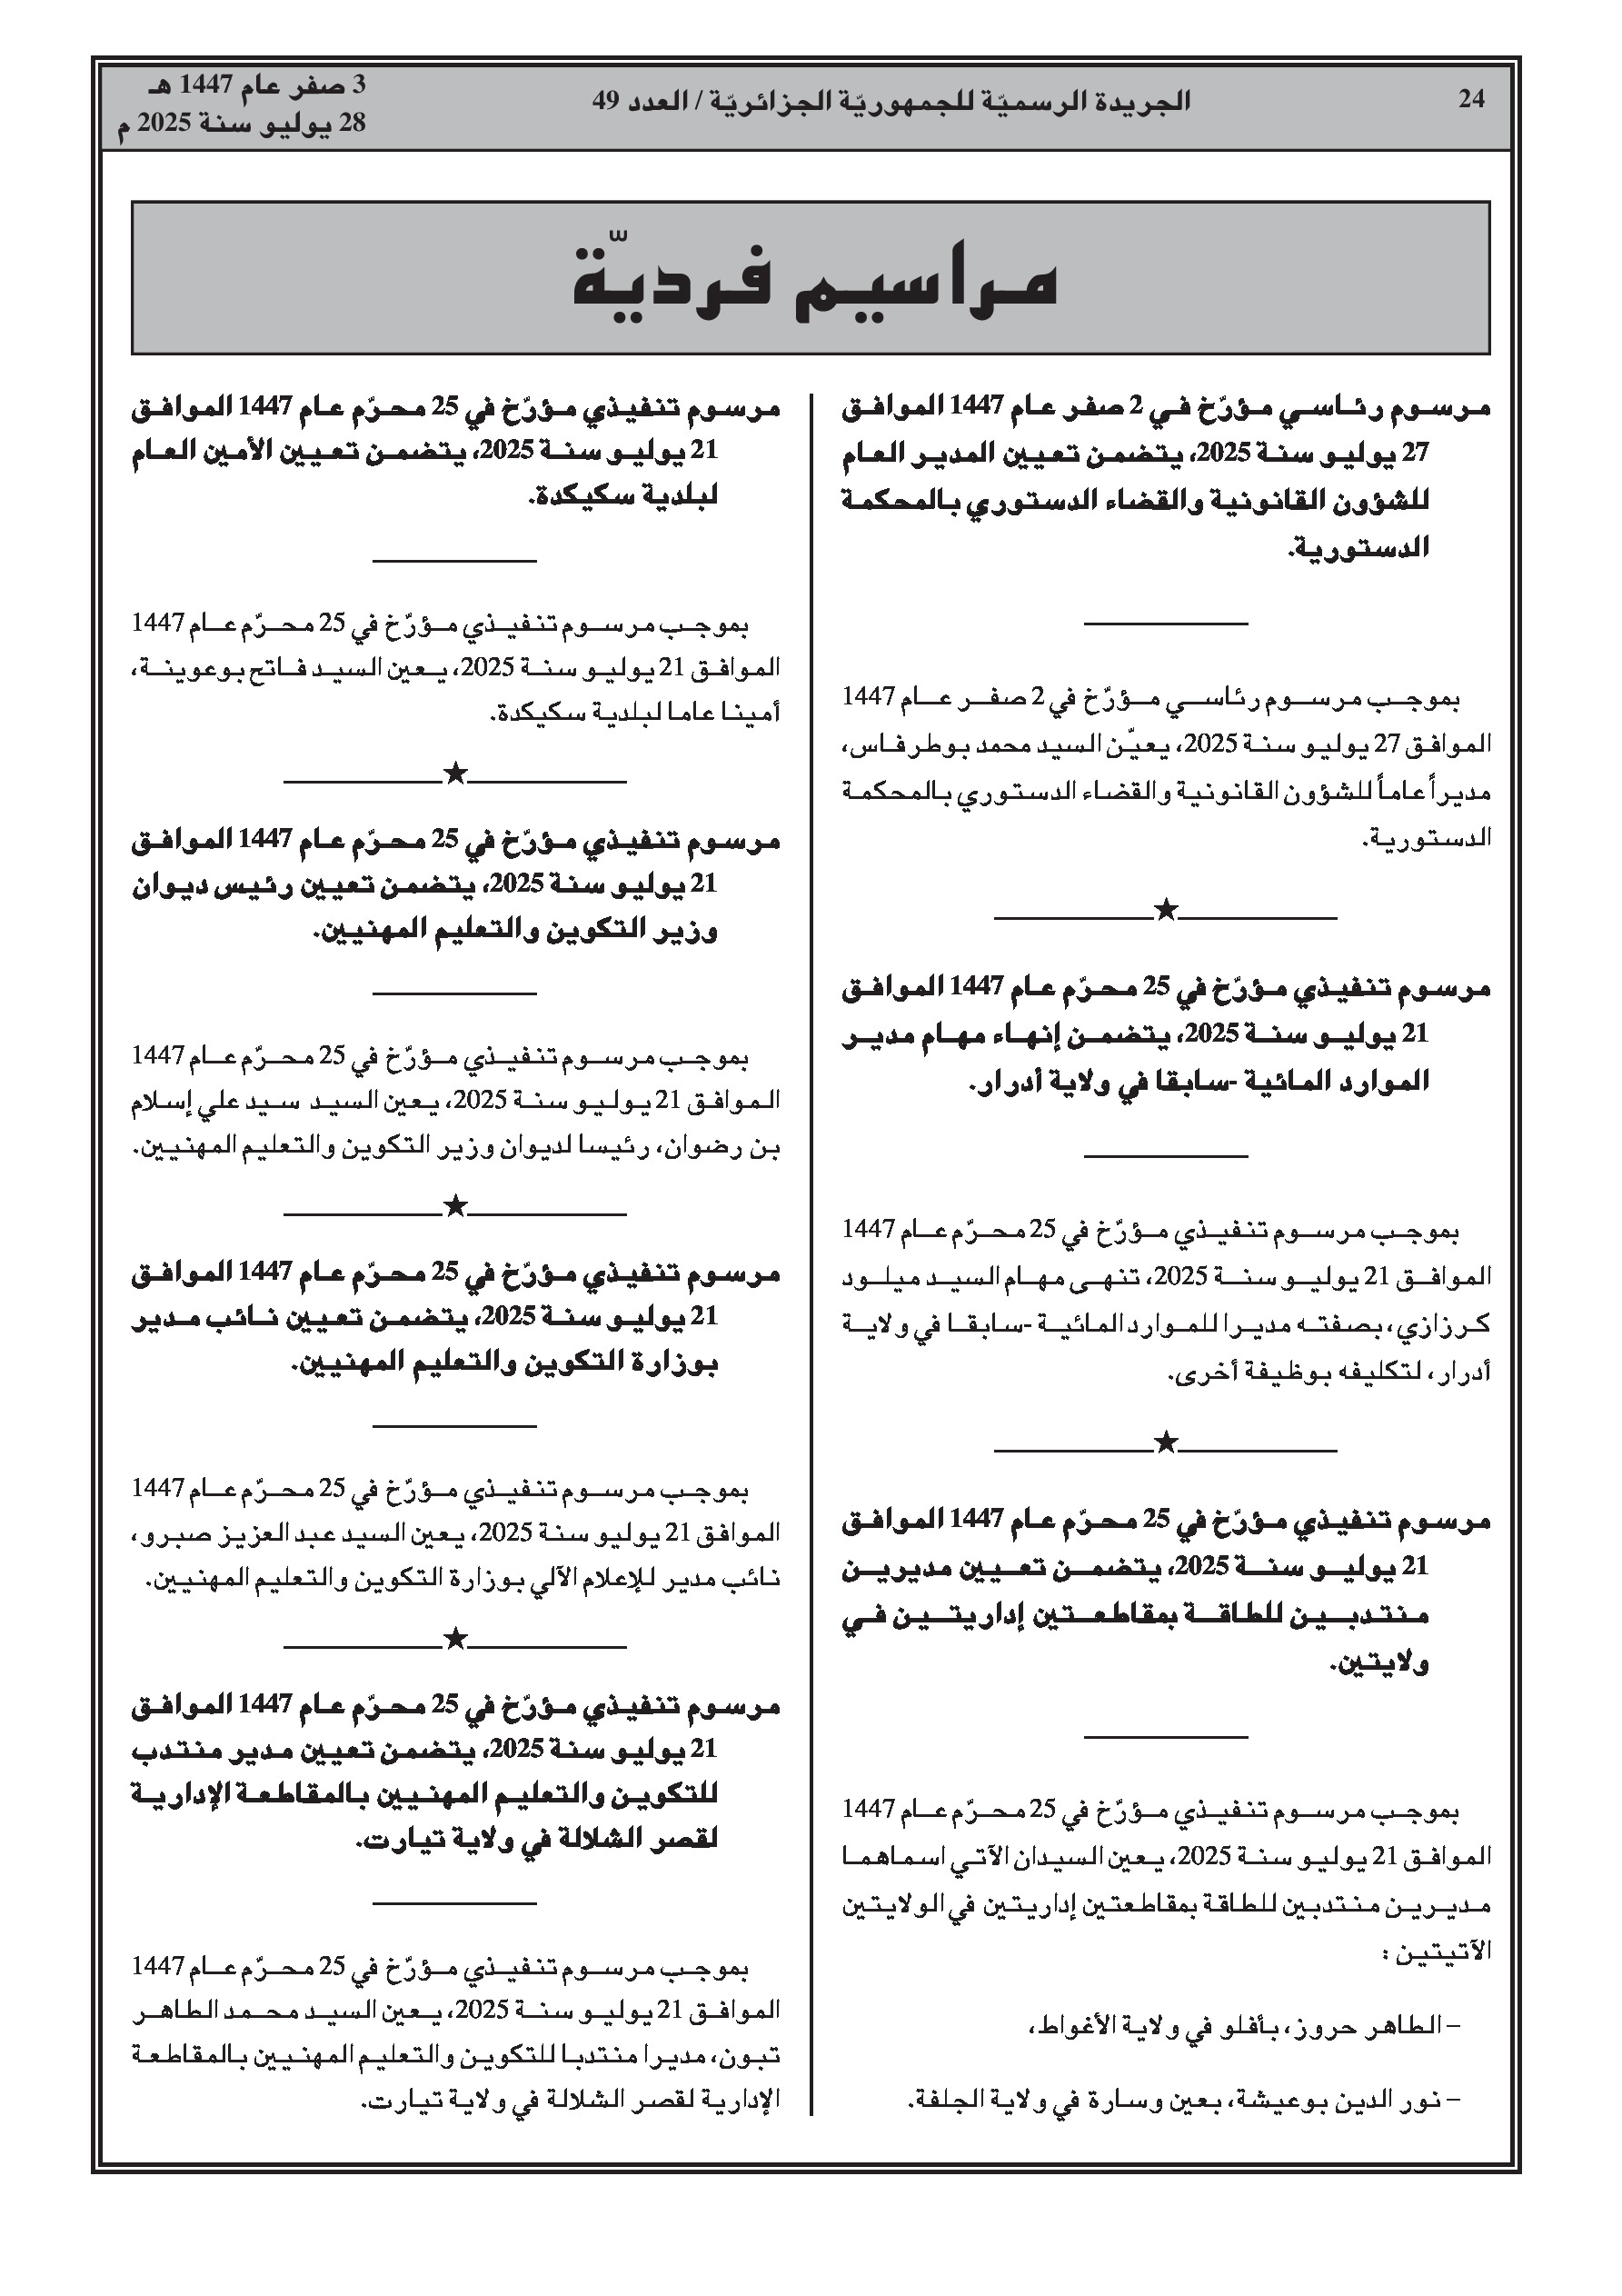 24
الجريدة الرسميّة للجمهوريّة الجزائريّة / العدد 49
3 صفر عام 1447 هـ
28 يوليو سنة 2025 م
مراسيم فرديّة
مرسوم رئاسي مؤرّخ في 2 صفر عام 1447 الموافق
27 يوليو سنة 2025، يتضمن تعيين المدير العام
للشؤون القانونية والقضاء الدستوري بالمحكمة
الدستورية.
بموجب مرسوم رئاسي مؤرّخ في 2 صفر عام 1447
الموافق 27 يوليو سنة 2025، يعيّن السيد محمد بوطرفاس،
مديراً عاماً للشؤون القانونية والقضاء الدستوري بالمحكمة
الدستورية.
★
مرسوم تنفيذي مؤرّخ في 25 محرّم عام 1447 الموافق
21 يوليو سنة 2025، يتضمن إنهاء مهام مدير
الموارد المائية -سابقا في ولاية أدرار.
بموجب مرسوم تنفيذي مؤرّخ في 25 محرّم عام 1447
الموافق 21 يوليو سنة 2025، تنهى مهام السيد ميلود
كرزازي، بصفته مديرا للموارد المائية -سابقا في ولاية
أدرار، لتكليفه بوظيفة أخرى.
★
مرسوم تنفيذي مؤرّخ في 25 محرّم عام 1447 الموافق
21 يوليو سنة 2025، يتضمن تعيين مديرين
منتدبين للطاقة بمقاطعتين إداريتين في
ولايتين.
بموجب مرسوم تنفيذي مؤرّخ في 25 محرّم عام 1447
الموافق 21 يوليو سنة 2025، يعين السيدان الآتي اسماهما
مديرين منتدبين للطاقة بمقاطعتين إداريتين في الولايتين
الآتيتين :
– الطاهر حروز، بأفلو في ولاية الأغواط،
– نور الدين بوعيشة، بعين وسارة في ولاية الجلفة.
مرسوم تنفيذي مؤرّخ في 25 محرّم عام 1447 الموافق
21 يوليو سنة 2025، يتضمن تعيين الأمين العام
لبلدية سكيكدة.
بموجب مرسوم تنفيذي مؤرّخ في 25 محرّم عام 1447
الموافق 21 يوليو سنة 2025، يعين السيد فاتح بوعوينة،
أمينا عاما لبلدية سكيكدة.
★
مرسوم تنفيذي مؤرّخ في 25 محرّم عام 1447 الموافق
21 يوليو سنة 2025، يتضمن تعيين رئيس ديوان
وزير التكوين والتعليم المهنيين.
بموجب مرسوم تنفيذي مؤرّخ في 25 محرّم عام 1447
الموافق 21 يوليو سنة 2025، يعين السيد سيد علي إسلام
بن رضوان، رئيسا لديوان وزير التكوين والتعليم المهنيين.
★
مرسوم تنفيذي مؤرّخ في 25 محرّم عام 1447 الموافق
21 يوليو سنة 2025، يتضمن تعيين نائب مدير
بوزارة التكوين والتعليم المهنيين.
بموجب مرسوم تنفيذي مؤرّخ في 25 محرّم عام 1447
الموافق 21 يوليو سنة 2025، يعين السيد عبد العزيز صبرو،
نائب مدير للإعلام الآلي بوزارة التكوين والتعليم المهنيين.
★
مرسوم تنفيذي مؤرّخ في 25 محرّم عام 1447 الموافق
21 يوليو سنة 2025، يتضمن تعيين مدير منتدب
للتكوين والتعليم المهنيين بالمقاطعة الإدارية
لقصر الشلالة في ولاية تيارت.
بموجب مرسوم تنفيذي مؤرّخ في 25 محرّم عام 1447
الموافق 21 يوليو سنة 2025، يعين السيد محمد الطاهر
تبون، مديرا منتدبا للتكوين والتعليم المهنيين بالمقاطعة
الإدارية لقصر الشلالة في ولاية تيارت.